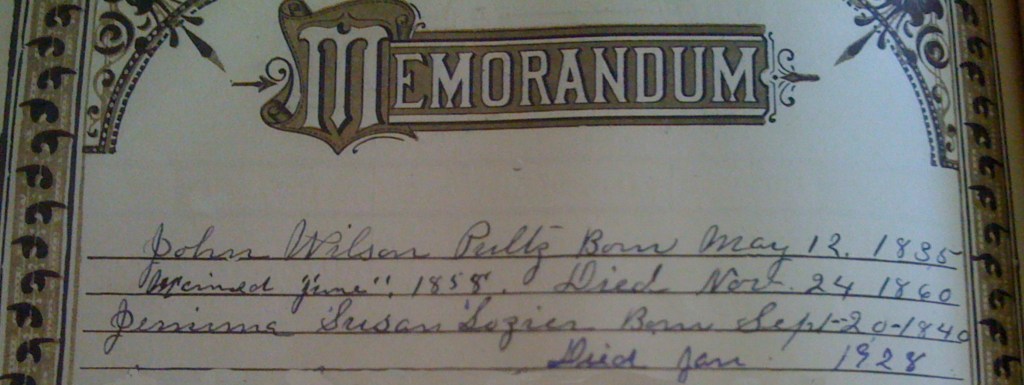 MEMORANDUM
John Wilson Pultz Born May 12, 1835
Married "June", 1858. Died Nov. 24 1860
Jemima Susan Lozier Born Sept-20-1840
Died Jan 1928